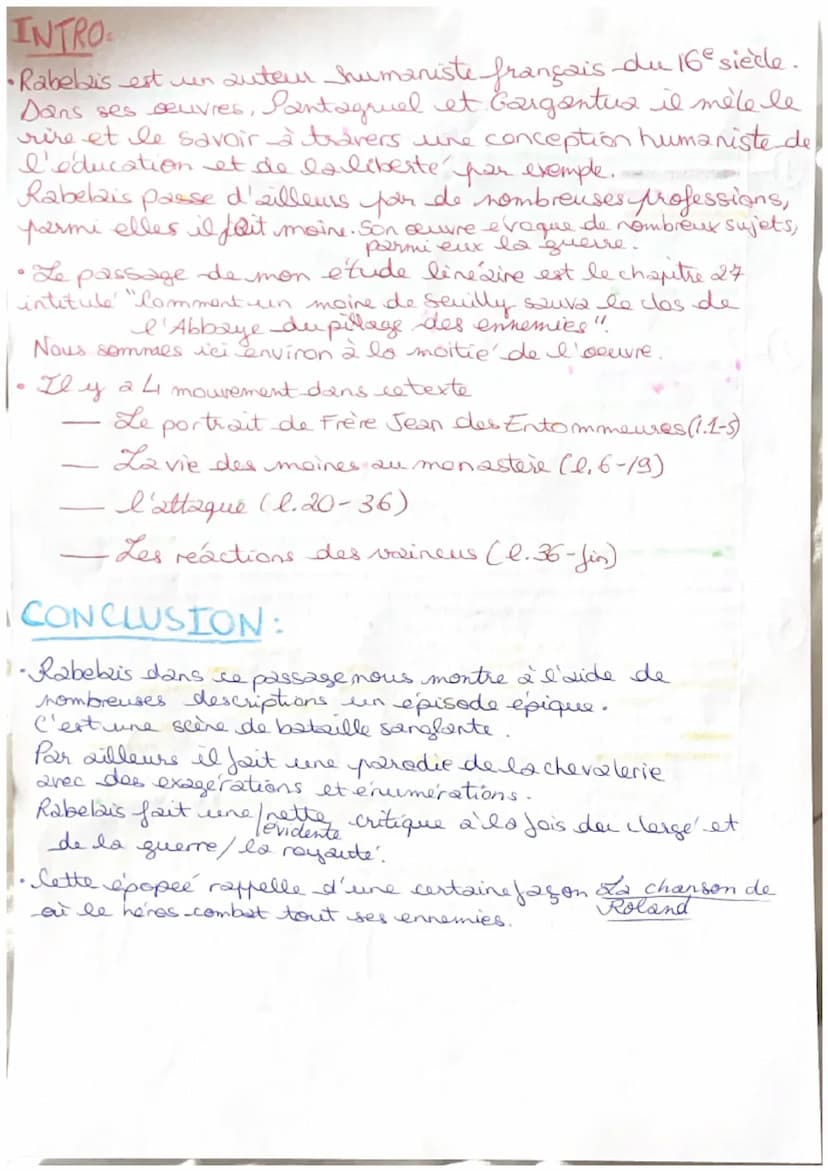 INTRO:
• Rabelais est un auteur humaniste français du 16e siècle.
Dans ses œuvres, Pantagruel et Gargantua il mêle le
rire et le savoir à travers une conception humaniste de
l'éducation et de la liberté par exemple.
Rabelais passe d'ailleurs par de nombreuses professions,
parmi elles il fait moine. Son œuvre évoque de nombreux sujets,
parmi eux la guerre.
• Le passage de mon étude linéaire est le chapitre 27
intitulé "Comment un moine de Seuilly sauva le clos de
l'Abbaye du pillage des ennemies".
Nous sommes ici environ à la moitié de l'oeuvre.
• Il y a 4 mouvement dans ce texte
— Le portrait de Frère Jean des Entommeures (l.1-5)
— La vie des moines au monastère (l.6-19)
— l'attaque (l.20-36)
— Les réactions des vaincus (l.36-fin)
CONCLUSION:
• Rabelais dans ce passage nous montre à l'aide de
nombreuses descriptions un épisode épique.
C'est une scène de bataille sanglante.
Par ailleurs il fait une parodie de la chevalerie
avec des exagérations et énumérations.
Rabelais fait une/nette critique à la fois du clergé et
/évidente
de la guerre/la royauté.
• Cette épopeé rappelle d'une certaine façon La chanson de
Roland
où le héros combat tout ses ennemies.